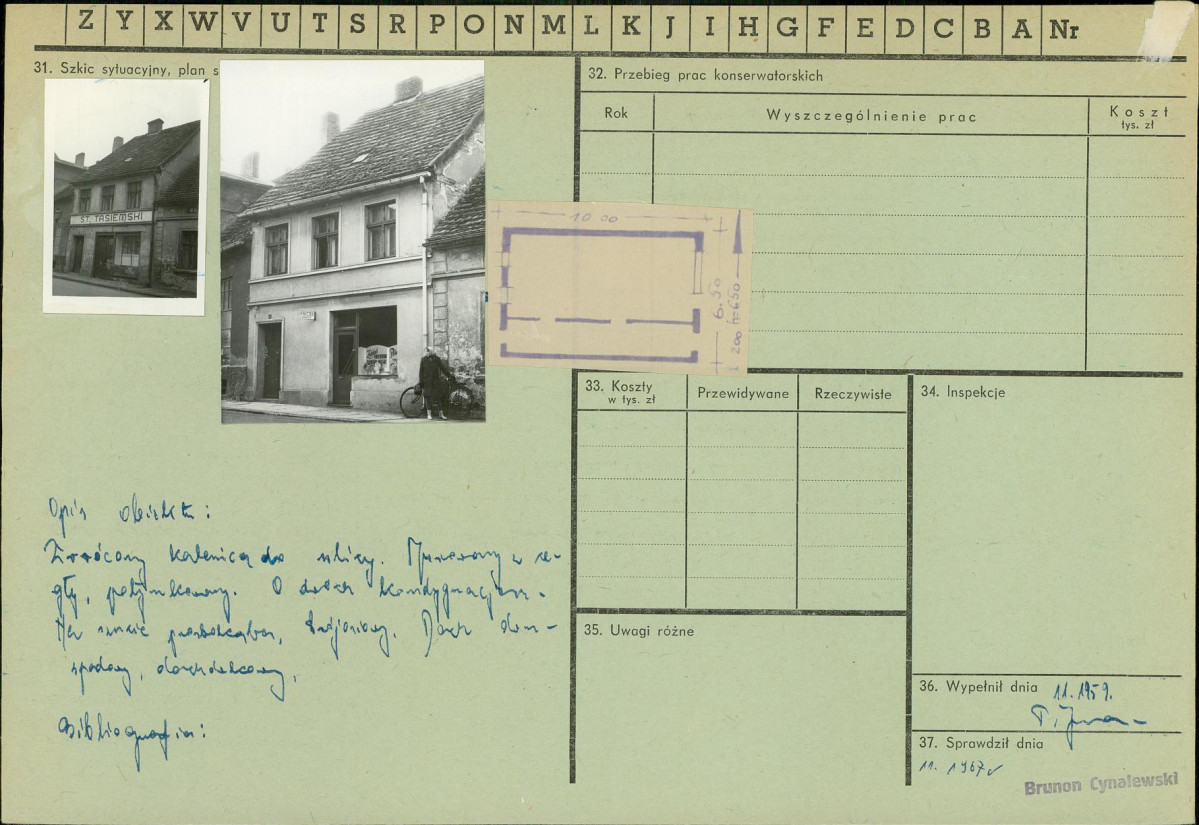 Z Y X W V U T S R P O N M L K J I H G F E D C B A Nr
31. Szkic sytuacyjny, plan s
ST. TASIEMSKI
10 00
6.50
200 h=650
32. Przebieg prac konserwatorskich
Rok
Wyszczególnienie prac
Koszt
tys. zł
33. Koszty
w tys. zł
Przewidywane
Rzeczywiste
34. Inspekcje
Opis obiektu:
Zwrócony kalenicą do ulicy. Murowany z ce-
gły, potynkowany. O dwóch kondygnacjach.
Na rzucie prostokąta, . Dach dwu-
spadowy, dachówkowy.
Bibliografia:
35. Uwagi różne
36. Wypełnił dnia
11.1959.
37. Sprawdził dnia
11. 1967
Brunon Cynalewski